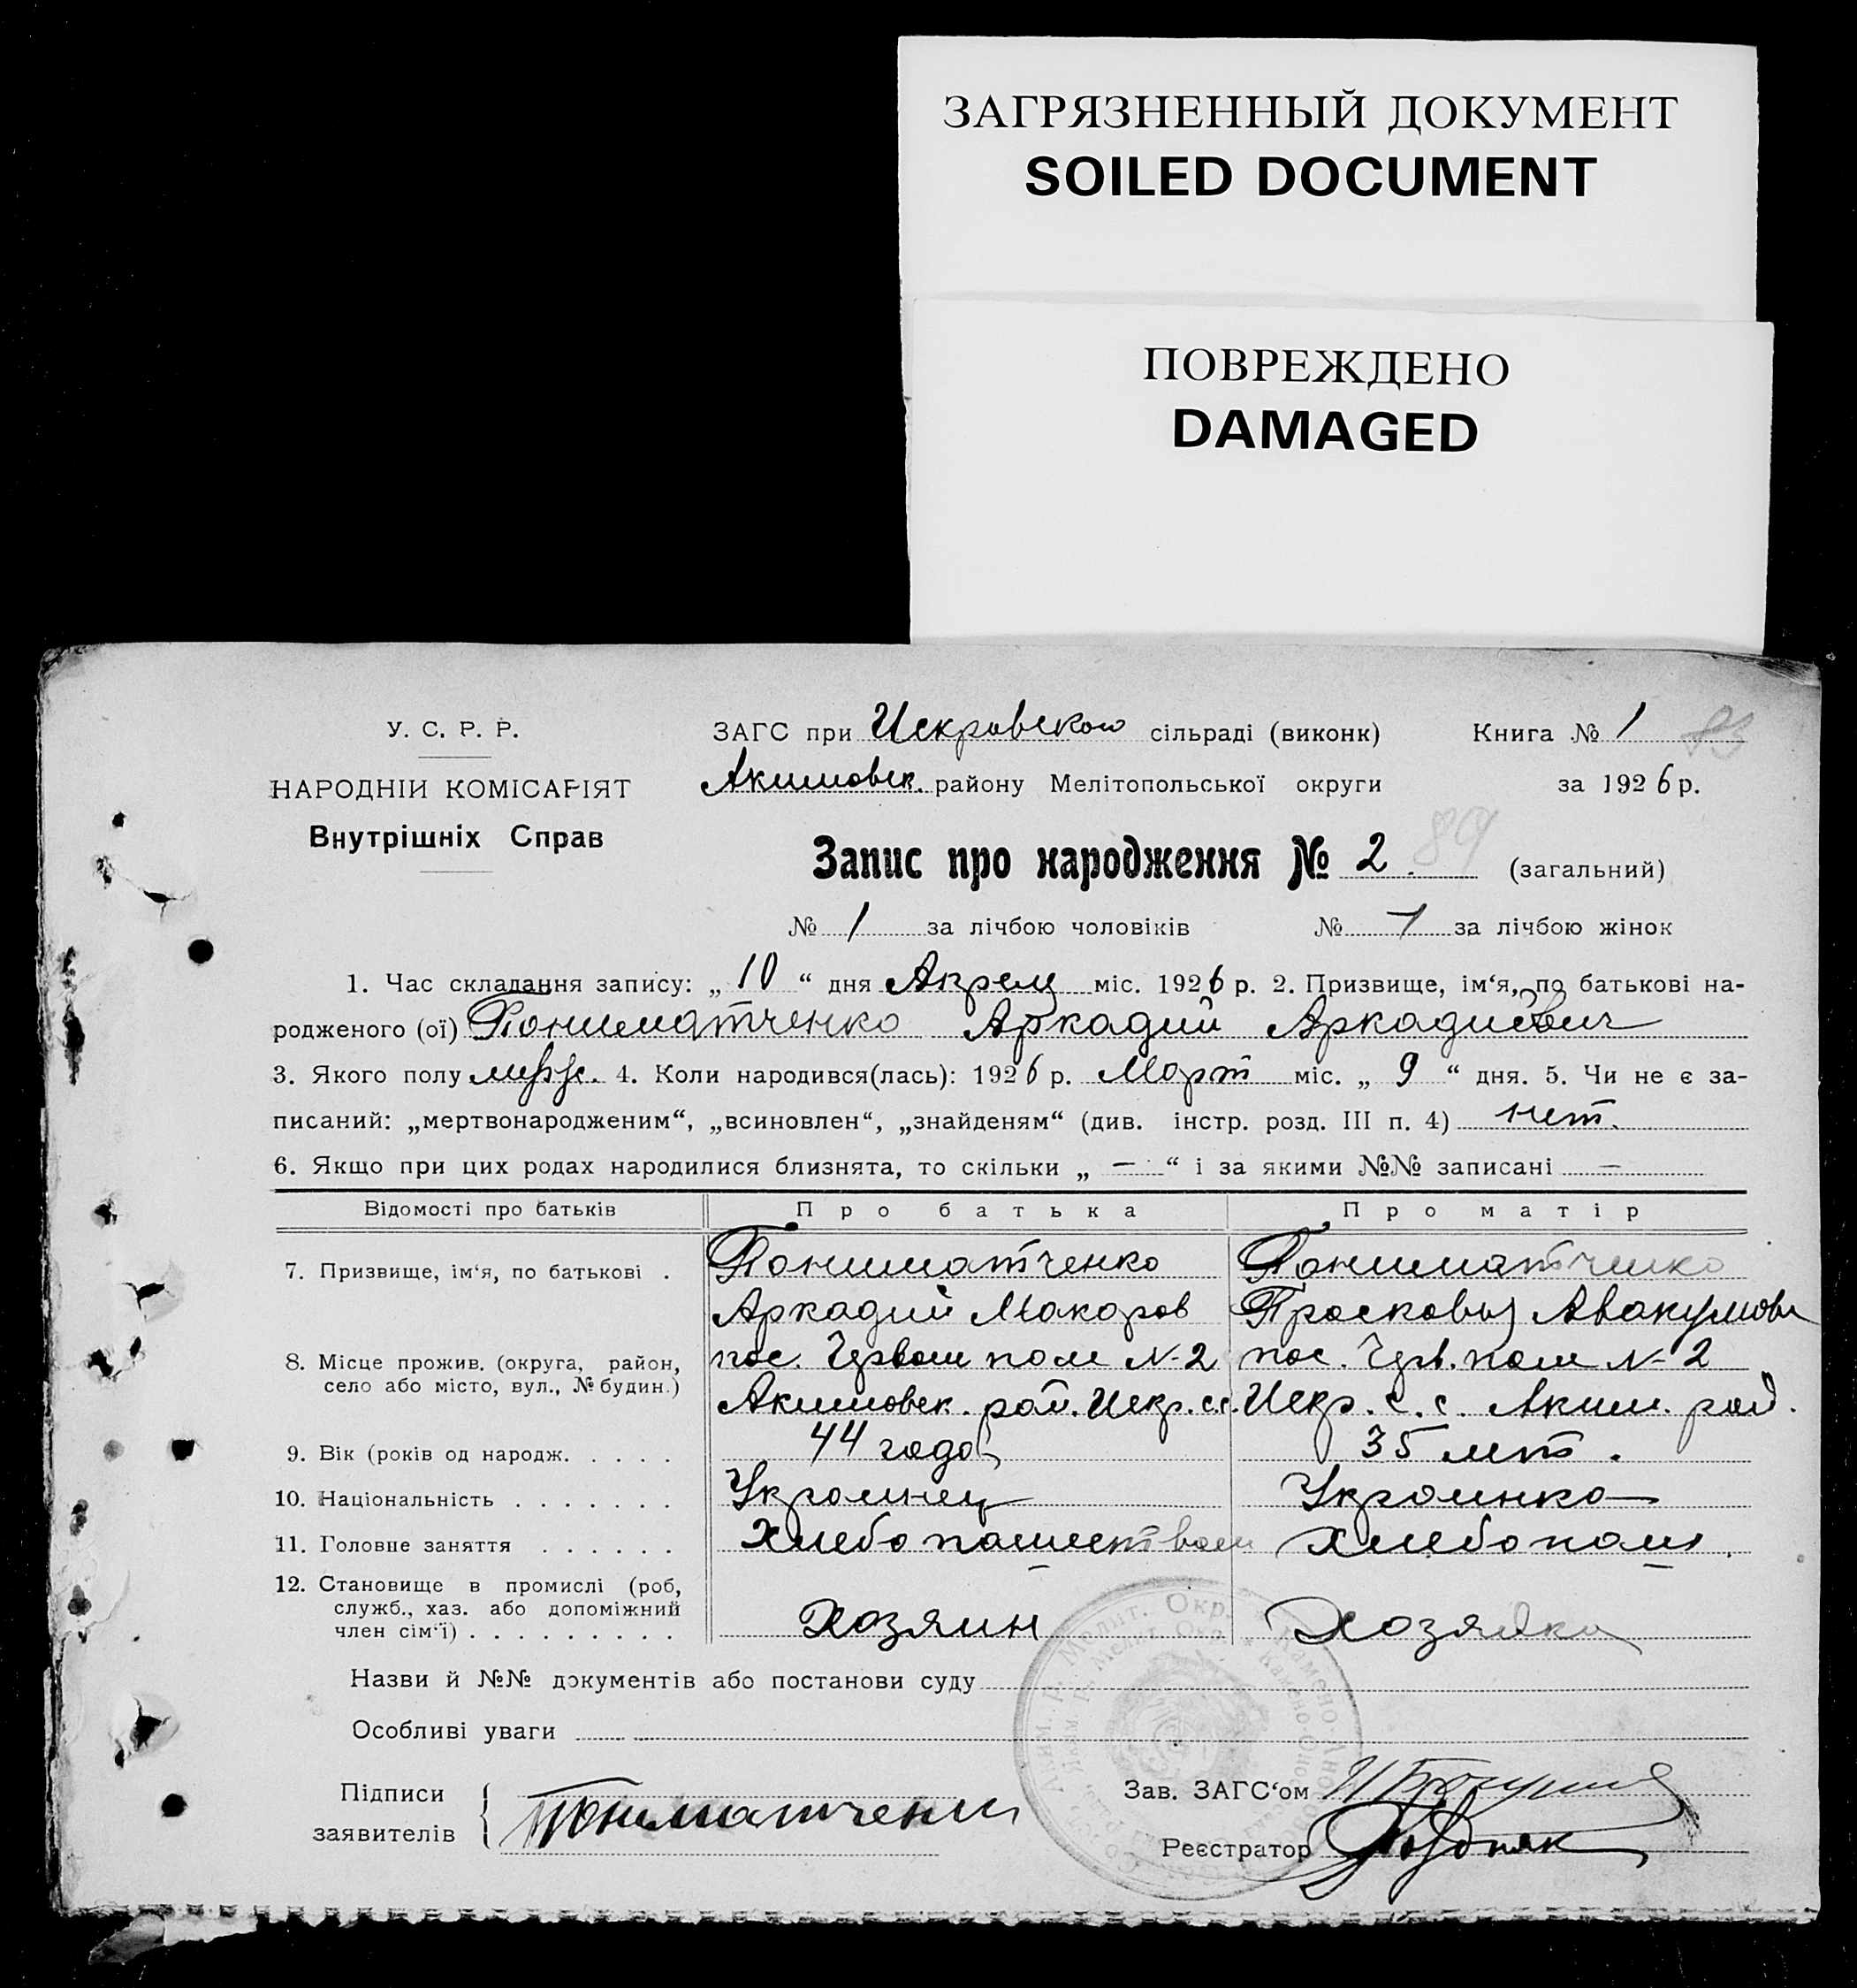 ЗАГРЯЗНЕННЫЙ ДОКУМЕНТ
SOILED DOCUMENT
ПОВРЕЖДЕНО
DAMAGED
У. С. Р. Р.
НАРОДНІЙ КОМІСАРІЯТ
Внутрішніх Справ
ЗАГС при Искровской сільраді (виконк)
Книга № 1 83
Акимовск. району Мелітопольської округи
за 1926 р.
Запис про народження № 2. 89 (загальний)
№ 1 за лічбою чоловіків № за лічбою жінок
1. Час складання запису: „ 10 “ дня Апрель міс. 1926 р. 2. Призвище, ім‘я, по батькові на-
родженого (ої) Пониматченко Аркадий Аркадиевич
3. Якого полу мужс. 4. Коли народився(лась): 1926 р. Март міс. „ 9 “ дня. 5. Чи не є за-
писаний: „мертвонародженим“, „всиновлен“, „знайденям“ (див. інстр. розд. III п. 4) нет.
6. Якщо при цих родах народилися близнята, то скільки „ — “ і за якими №№ записані —
Відомості про батьків Про батька Про матір
7. Призвище, ім‘я, по батькові . Пониматченко Пониматченко
Аркадий Макаров Прасковья Авакумовн
8. Місце прожив. (округа, район,
село або місто, вул., № будин.)
пос. Червон поле N-2 пос. Черв. поле N-2
Акимовск. рай. Искр. сс. Искр. с. с. Аким. рай.
9. Вік (років од народж. . . . . 44 года 35 лет.
10. Національність . . . . . . . Украинец Украинка
11. Головне заняття . . . . . . Хлебопашеством Хлебопаш.
12. Становище в промислі (роб,
служб., хаз. або допоміжний
член сім‘ї) . . . . . . . . . Хозяин Хозяйка
Назви й №№ документів або постанови суду
Особливі уваги
Підписи
заявителів
Пониматченко
Зав. ЗАГС‘ом
Реєстратор